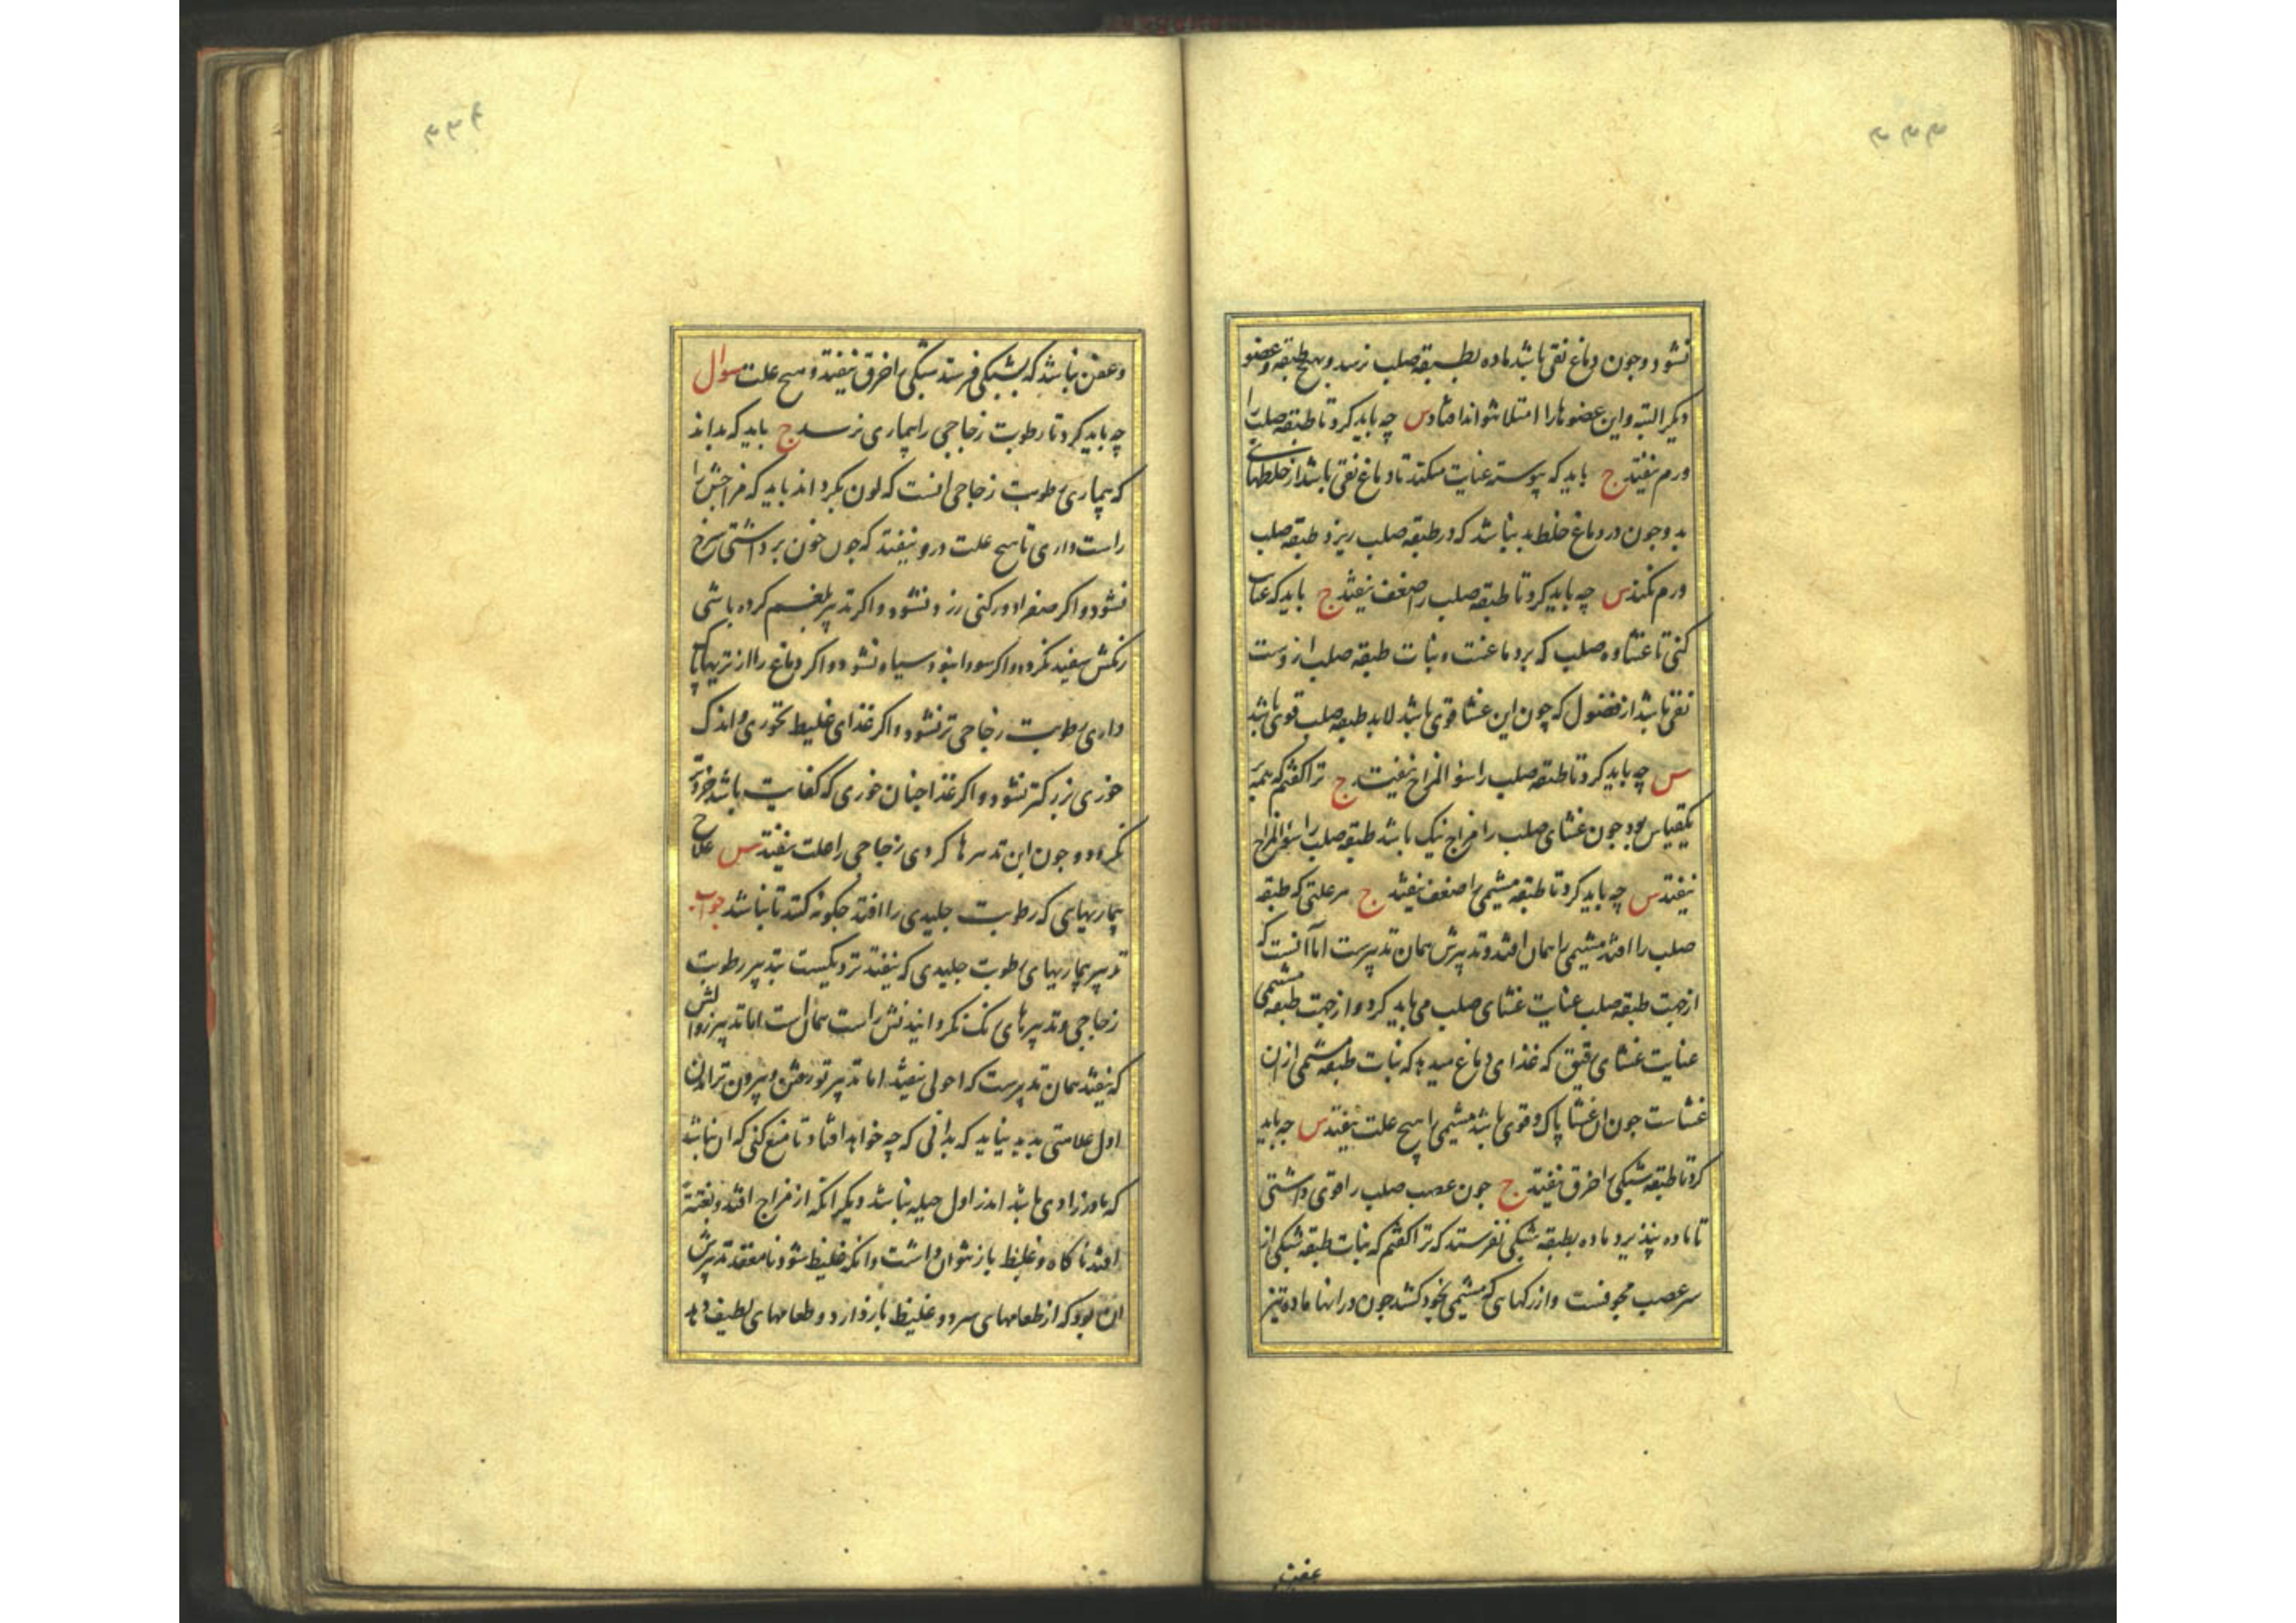 ۳۳۳
نشود و چون دماغ نقی باشد ماده بطبقه صلب نرسد و بهیچ طبقه و عضو
دیکر البته و این عضوها را امتلا نتواند افتاد س چه باید کرد تا طبقه صلب را
ورم نیفتد ج باید که پیوسته عنایت میکند تا دماغ نقی باشد از خلطهای
بد و جون در دماغ خلط بد نباشد که در طبقه صلب ریزد طبقه صلب
ورم نکند س چه باید کرد تا طبقه صلب را ضعف نیفتد ج باید که عنایت
کنی تا غشاوه صلب که بر دماغست و نبات طبقه صلب از وست
نقی باشد از فضول که چون این غشا قوی باشد لابد طبقه صلب قوی باشد
س چه باید کرد تا طبقه صلب را سؤ المزاج نیفتد ج ترا کفتم که همه
یکقیاس بود جون غشای صلب را مزاج نیک باشد طبقه صلب را سؤ المزاج
نیفتد س چه باید کرد تا طبقه مشیمی را ضعف نیفتد ج هر علتی که طبقه
صلب را افتد مشیمی را همان افتد و تدبیرش همان تدبیرست اما آنست که
از جهت طبقه صلب عنایت غشای صلب می باید کرد و از جهت طبقه مشیمی
عنایت غشای رقیق که غذای دماغ میدهد که نبات طبقه مشیمی از ان
غشاست جون ان غشا پاک و قوی باشد مشیمی را هیچ علت نیفتد س جه باید
کرد تا طبقه شبکی را خرق نیفتد ج جون عصب صلب را قوی داشتی
تا ماده نپذیرد ماده بطبقه شبکی نفرستد که ترا کفتم که نبات طبقه شبکی از
سر عصب مجوفست و از رکهایی که مشیمی بخود کشد جون در انها ماده تیز
عفن
۳۳۴
و عفن نباشد که بشبکی فرستد شبکی را خرق نیفتد و هیچ علت سوال
چه باید کرد تا رطوبت زجاجی را بیماری نرسد ج باید که بداند
که بیماری رطوبت زجاجی انست که لون بکرداند باید که مزاجش را
راست داری تا هیچ علت درو نیفتد که جون خون برداشتی سرخ
نشود و اکر صفرا دور کنی زرد نشود و اکر تدبیر بلغم کرده باشی
رنکش سفید نکردد و اکر سودا نبود سیاه نشود و اکر دماغ را از تریها پاک
داری رطوبت زجاجی تر نشود و اکر غذای غلیظ نخوری و اندک
خوری بزرکتر نشود و اکر غذا جنان خوری که کفایت باشد خردتر
نکردد و جون این تدبیرها کردی زجاجی را علت نیفتد س علاج
بیماریهایی که رطوبت جلیدی را افتد جکونه کنند تا نباشد جواب
تدبیر بیماریهای رطوبت جلیدی که نیفتد نزدیکست بتدبیر رطوبت
زجاجی و تدبیرهای رنک نکردانیدنش راست همان است اما تدبیر زوالش
که نیفتد همان تدبیرست که احولی نیفتد اما تدبیر تو رفتن و بیرون تر امدن
اول علامتی بدید نیاید که بدانی که چه خواهد افتاد تا منع کنی که ان نباشد
که مادرزادی باشد اندر اول حیله نباشد دیکر انکه از مزاج افتد و بغتةً
افتد ناکاه و غلیظ باز نتوان داشت و انکه غلیظ شود نامعقد تدبیرش
ان بود که از طعامهای سرد و غلیظ باز دارد و طعامهای لطیف دهد